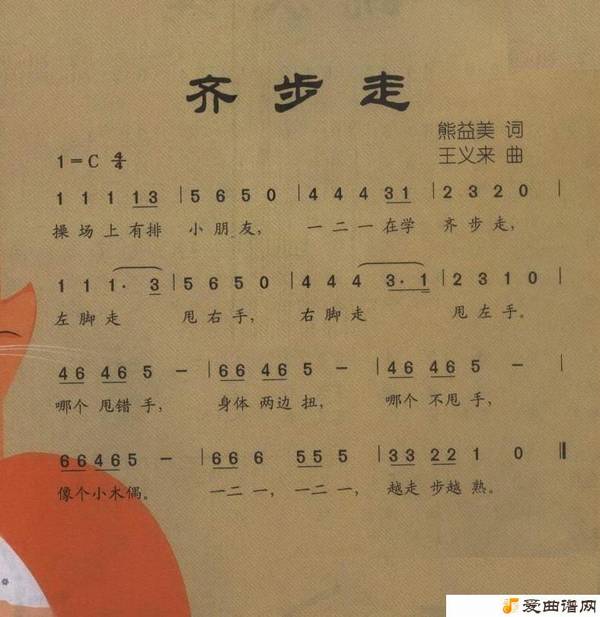 齐步走
熊益美 词
1=C 4/4
王义来 曲
1 1 1 13 | 5 6 5 0 | 4 4 4 31 | 2 3 2 0 |
操场上有排 小朋友, 一二一在学 齐步走,
1 1 1· 3 | 5 6 5 0 | 4 4 4 3·1 | 2 3 1 0 |
左脚走 甩右手, 右脚走 甩左手。
46 46 5 – | 66 46 5 – | 46 46 5 – |
哪个甩错手, 身体两边扭, 哪个不甩手,
66 46 5 – | 66 6 55 5 | 33 22 1 0 ‖
像个小木偶。 一二一,一二一, 越走步越熟。
爱曲谱网